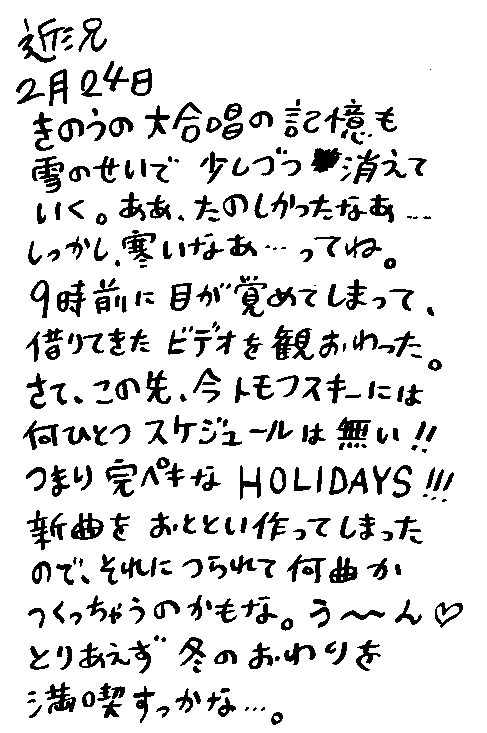 近況
2月24日
きのうの大合唱の記憶も
雪のせいで 少しづつ 消えて
いく。ああ、たのしかったなあ…
しっかし、寒いなあ…ってね。
9時前に目が覚めてしまって、
借りてきた ビデオを観おわった。
さて、この先、今トモフスキーには
何ひとつ スケジュールは無い!!
つまり 完ペキな HOLIDAYS!!!
新曲を おととい作ってしまった
ので、それに つられて 何曲か
つくっちゃうのかもな。う〜〜ん♡
とりあえず 冬のおわりを
満喫すっかな…。